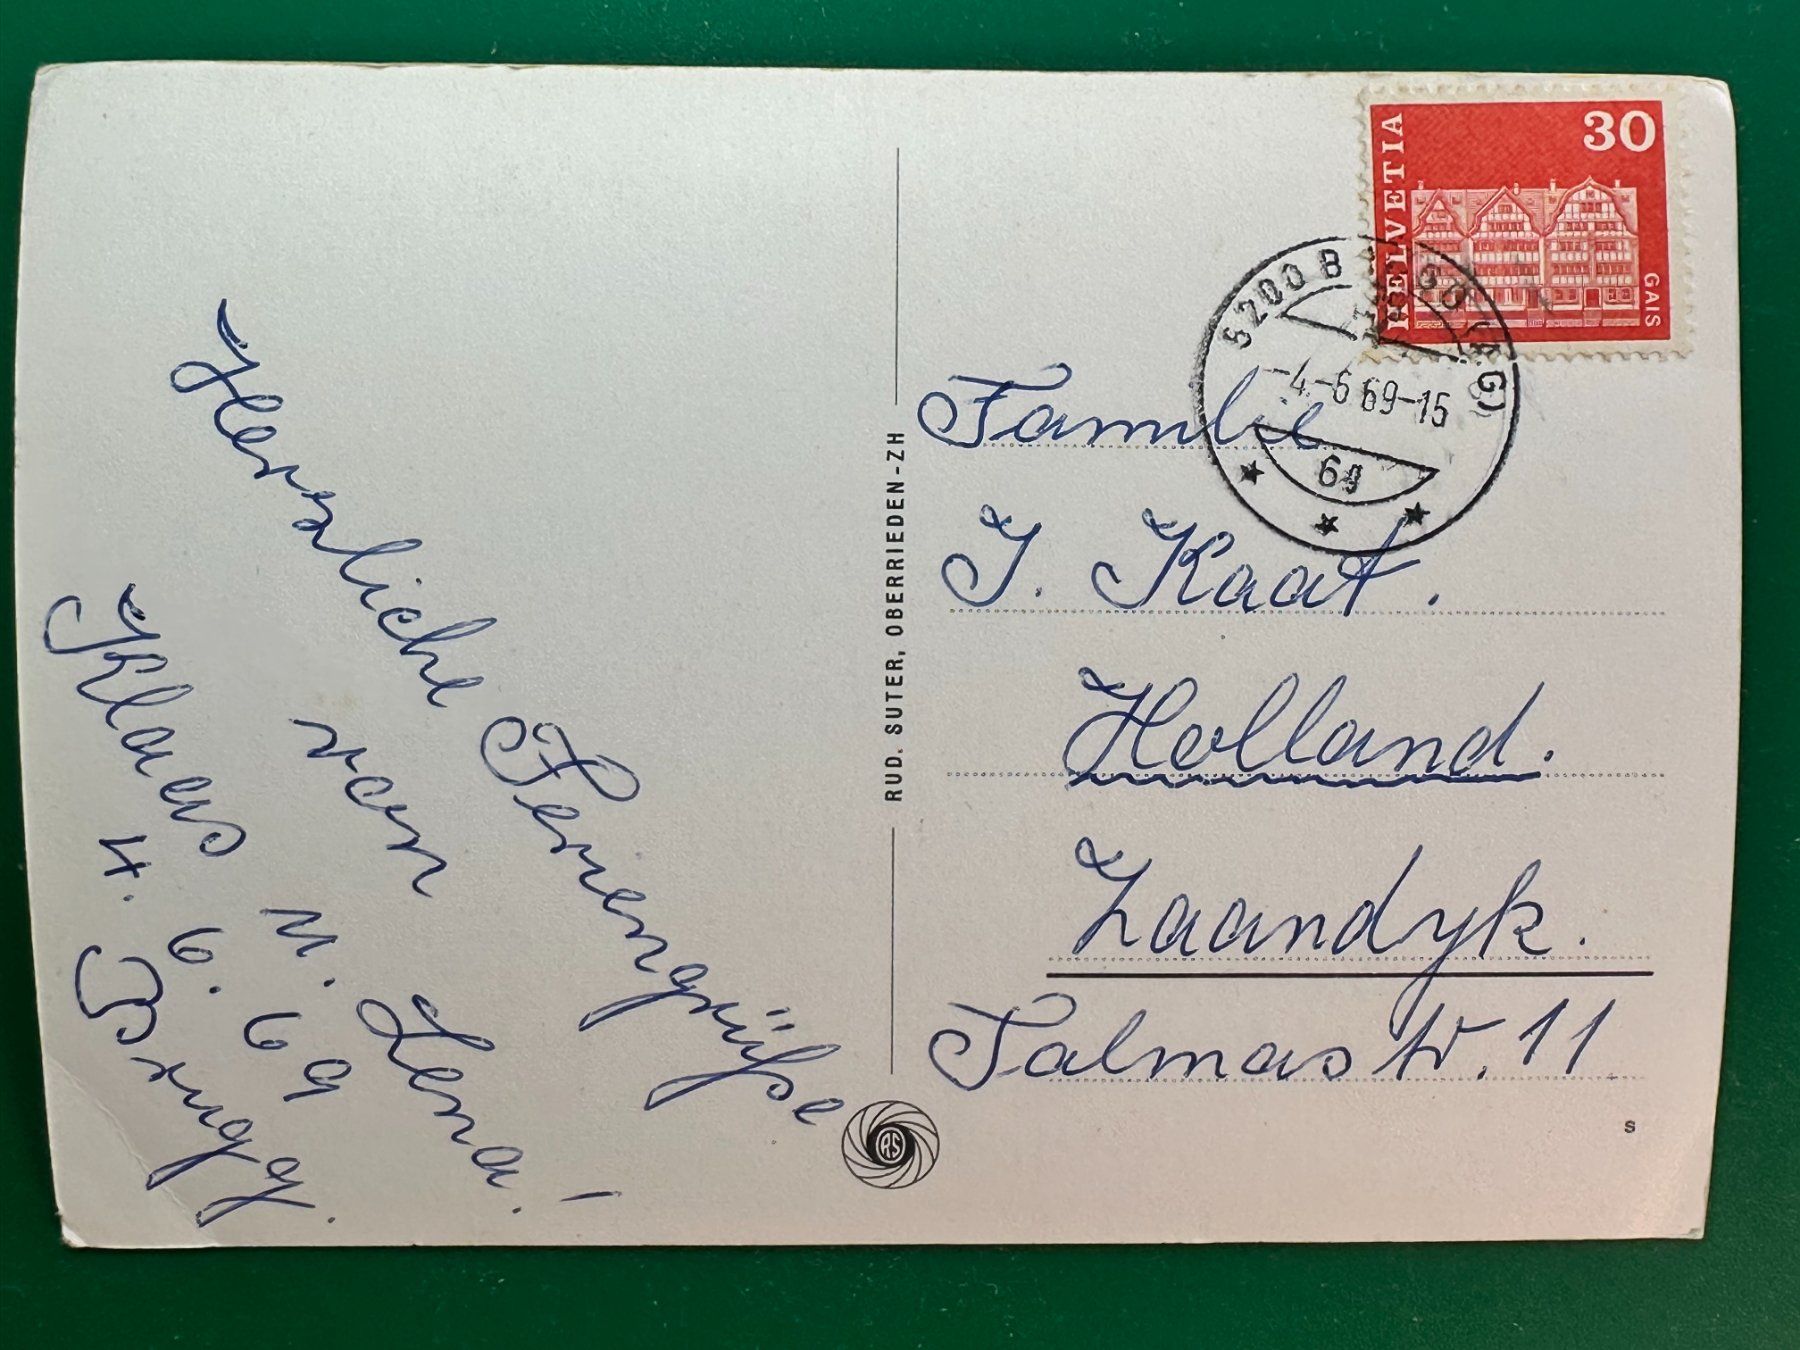 Herzliche Feriengrüße
von
Klaas u. Lena!
4. 6. 69
Brugg.
RUD. SUTER, OBERRIEDEN-ZH
RS
HELVETIA
30
GAIS
5200 BRUGG (AG)
-4-6 69-15
Familie
J. Kaat.
Holland.
Zaandyk.
Talmastr. 11
S